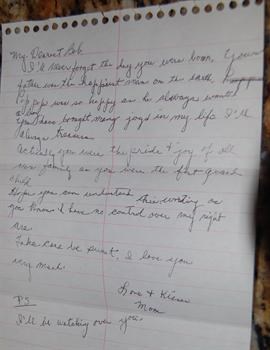 My Dearest Bob,
I'll never forget the day you were born, your
father was the happiest man on the earth,
pop pop was so happy as he always wanted
a boy.
You have bought many joys in my life I'll
always
Actually you were the pride & joy of all
our family as you were the first grand
child.
Hope you can understand this writing as
you know I have no control over my right
are.
Take care be sweet, I love you
very much.
Love & Kisses
Mom
P.S.
I'll be watching over you.